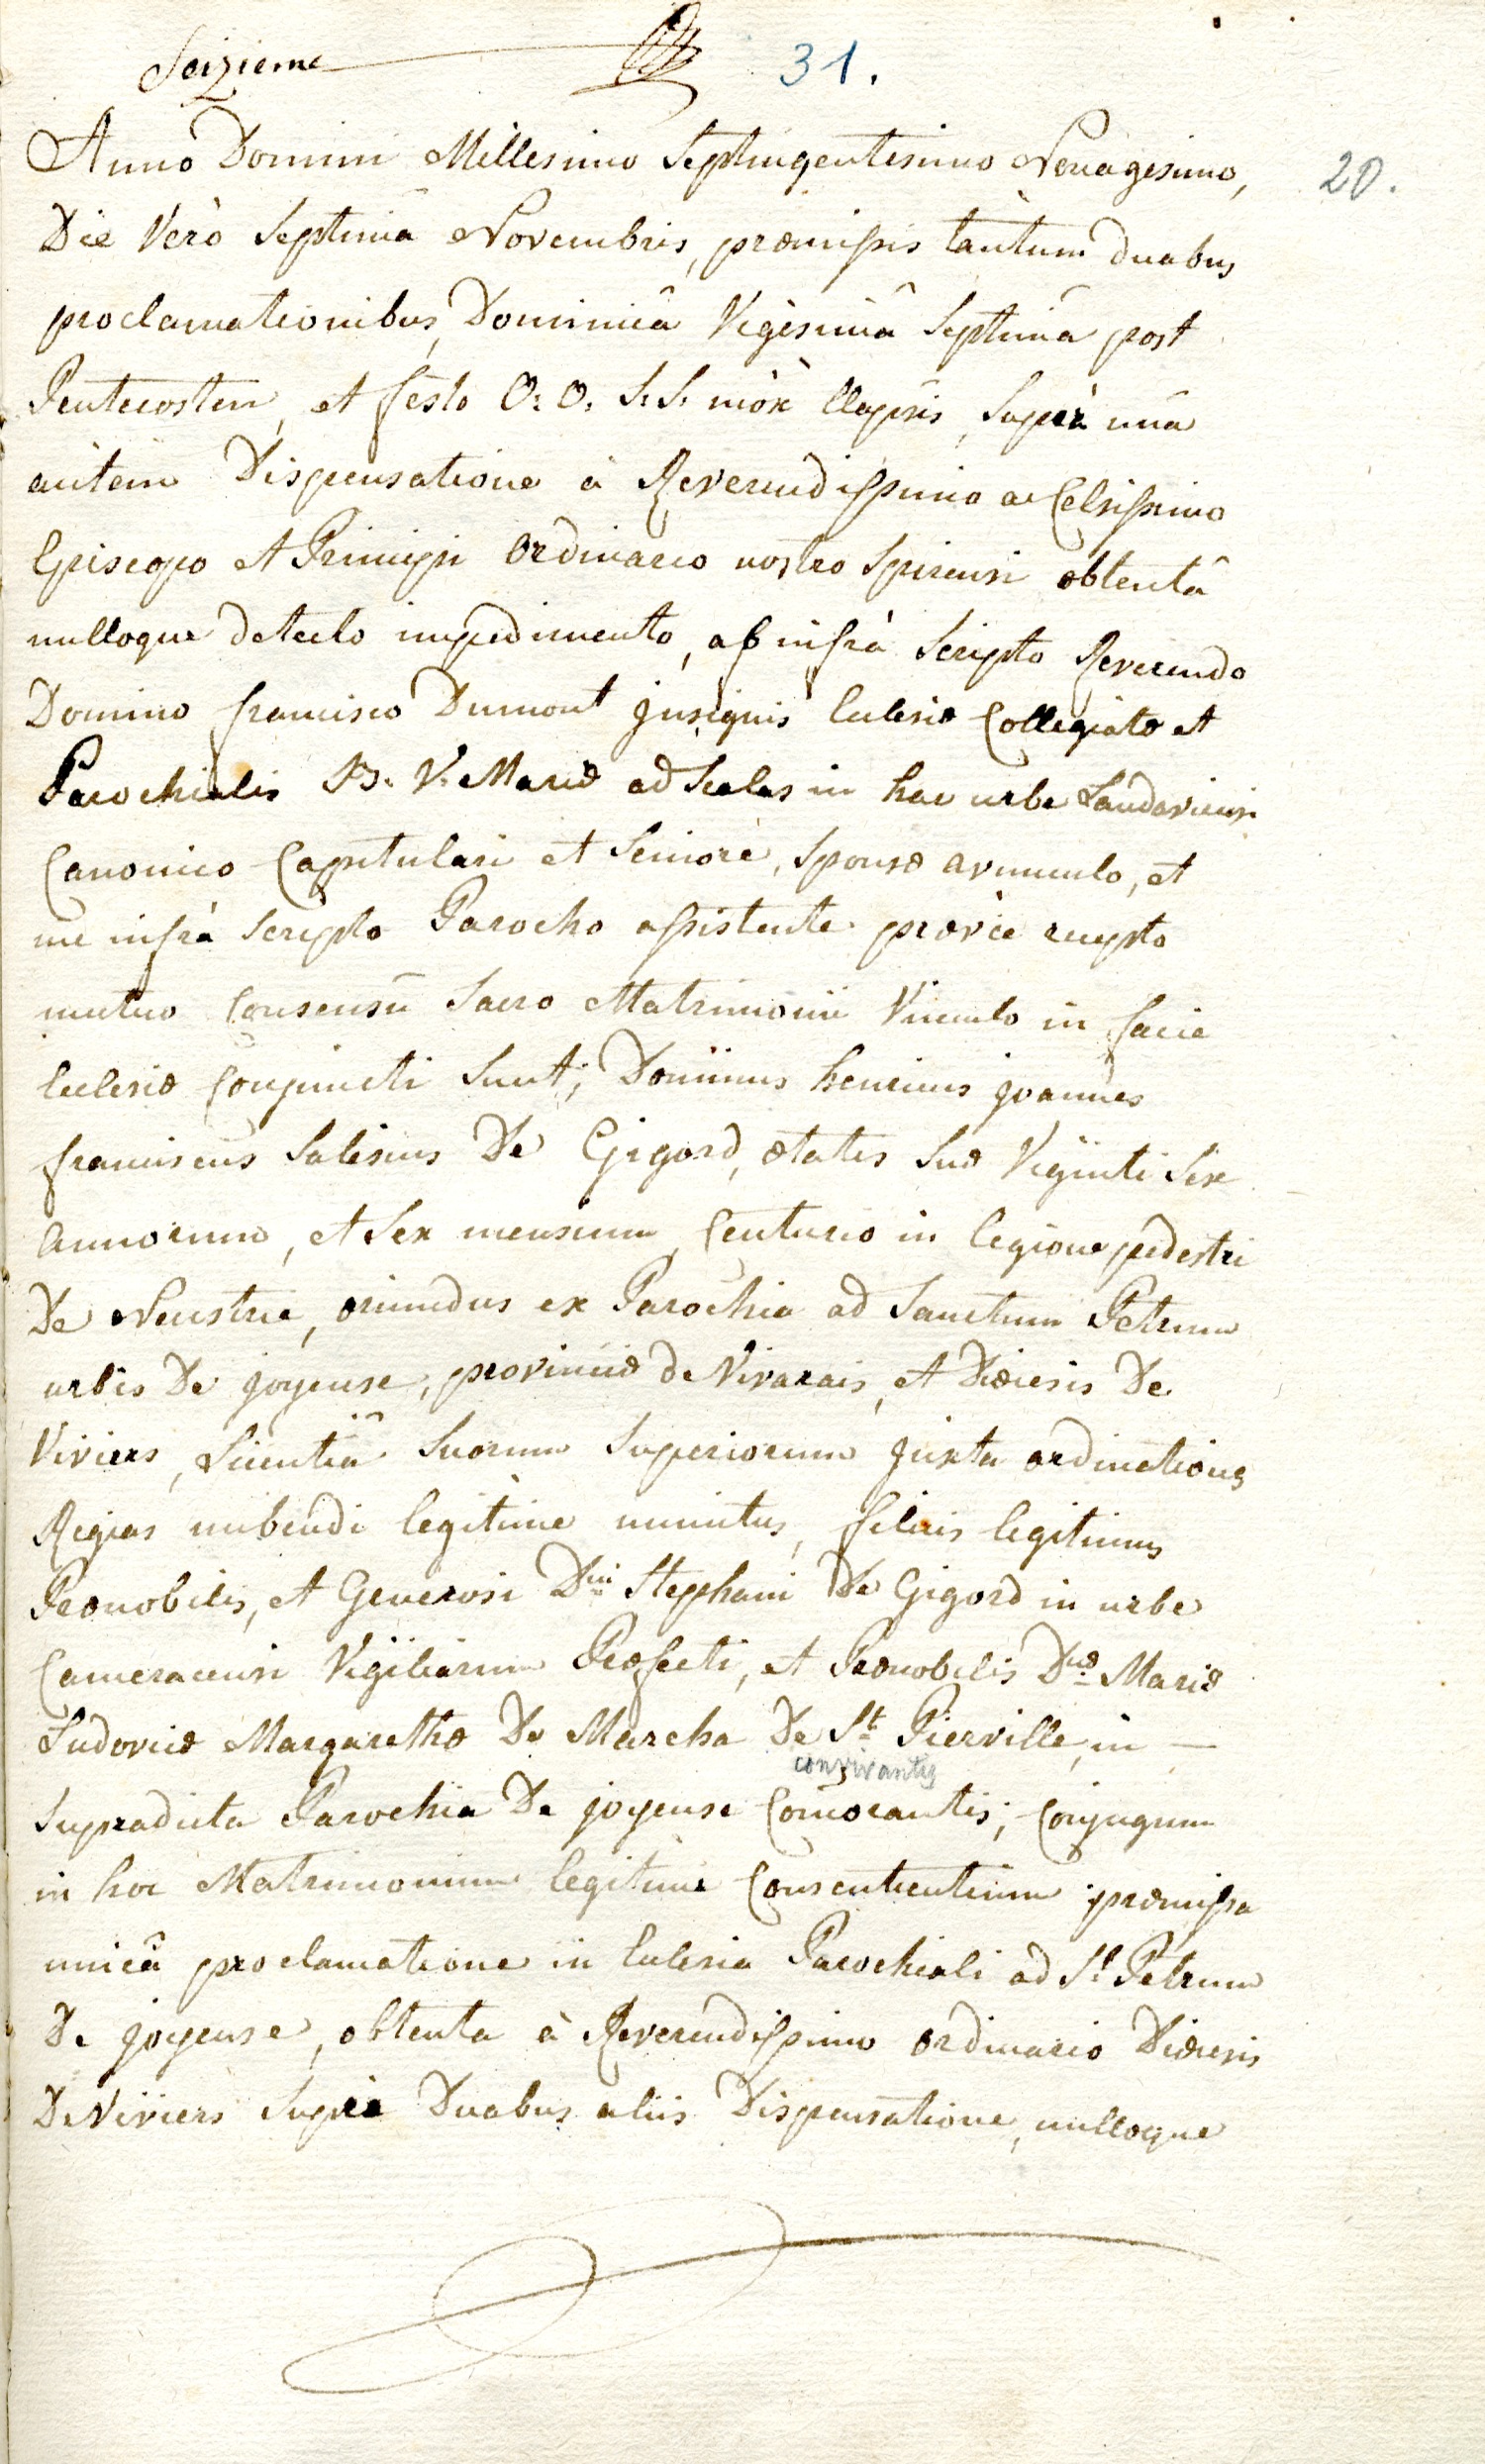 Seizieme 31.
Anno Domini Millesimo Septingentesimo Nonagesimo, 20.
Die Verò Septimâ Novembris, præmissis tantùm duabus
proclamationibus, Dominicâ Vigesimâ Septimâ post
Pentecosten, et festo O: O. S: S. mòx Elapsis, Supèr unâ
autem Dispensatione à Reverendissimo ac Celsissimo
Episcopo et Principi Ordinario nostro Spirensi obtentâ
nulloque detecto impedimento, ab infrà Scripto Reverendo
Domino francisco Dumont jnsignis Ecclesiæ Collegiatæ et
Parochialis B. V. Mariæ ad Scalas in hac urbe Landaviensi
Canonico Capitulari et Seniorè, Sponsæ avunculo, et
me infrà Scripto Parocho assistente præviè recepto
mutuo Consensu Sacro Matrimonii Vinculo in facie
Ecclesiæ Conjuncti Sunt; Dominus henricus joannes
franciscus Salesius De Gigord, ætatis Suæ Viginti Sex
annorum, et Sex mensium, Centurio in legione pedestri
De Neustrie, oriundus ex Parochia ad Sanctum Petrum
urbis De joyeuse, provinciæ de Vivarais, et Diœcesis De
Viviers, Licentiâ Suorum Superiorum juxta ordinationes
Regias nubendi legitime munitus, filius legitimus
Prænobilis, et Generosi Dni Stephani De Gigord in urbe
Cameracensi Vigiliarum Præfecti, et Prænobilis Dnæ Mariæ
Ludovicæ Margarethæ De Marcha De St. Pierville, in
convivantis
Supradicta Parochia De joyeuse Comorantis; Conjugum
in hoc Matrimonium legitime Consentientium præmissa
unicâ proclamatione in Ecclesia Parochiali ad St. Petrum
De joyeuse, obtenta à Reverendissimo ordinario Diœcesis
De Viviers Super Duabus aliis Dispensatione, nulloque